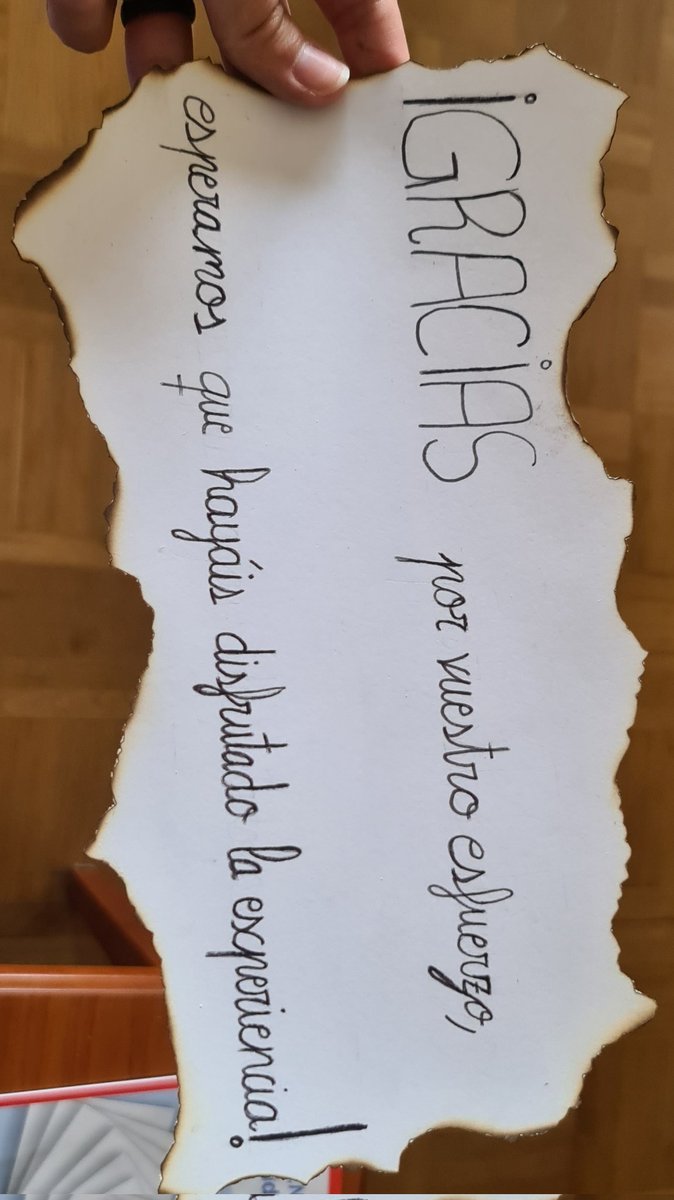 ¡GRACIAS por vuestro esfuerzo,
esperamos que hayáis disfrutado la experiencia!